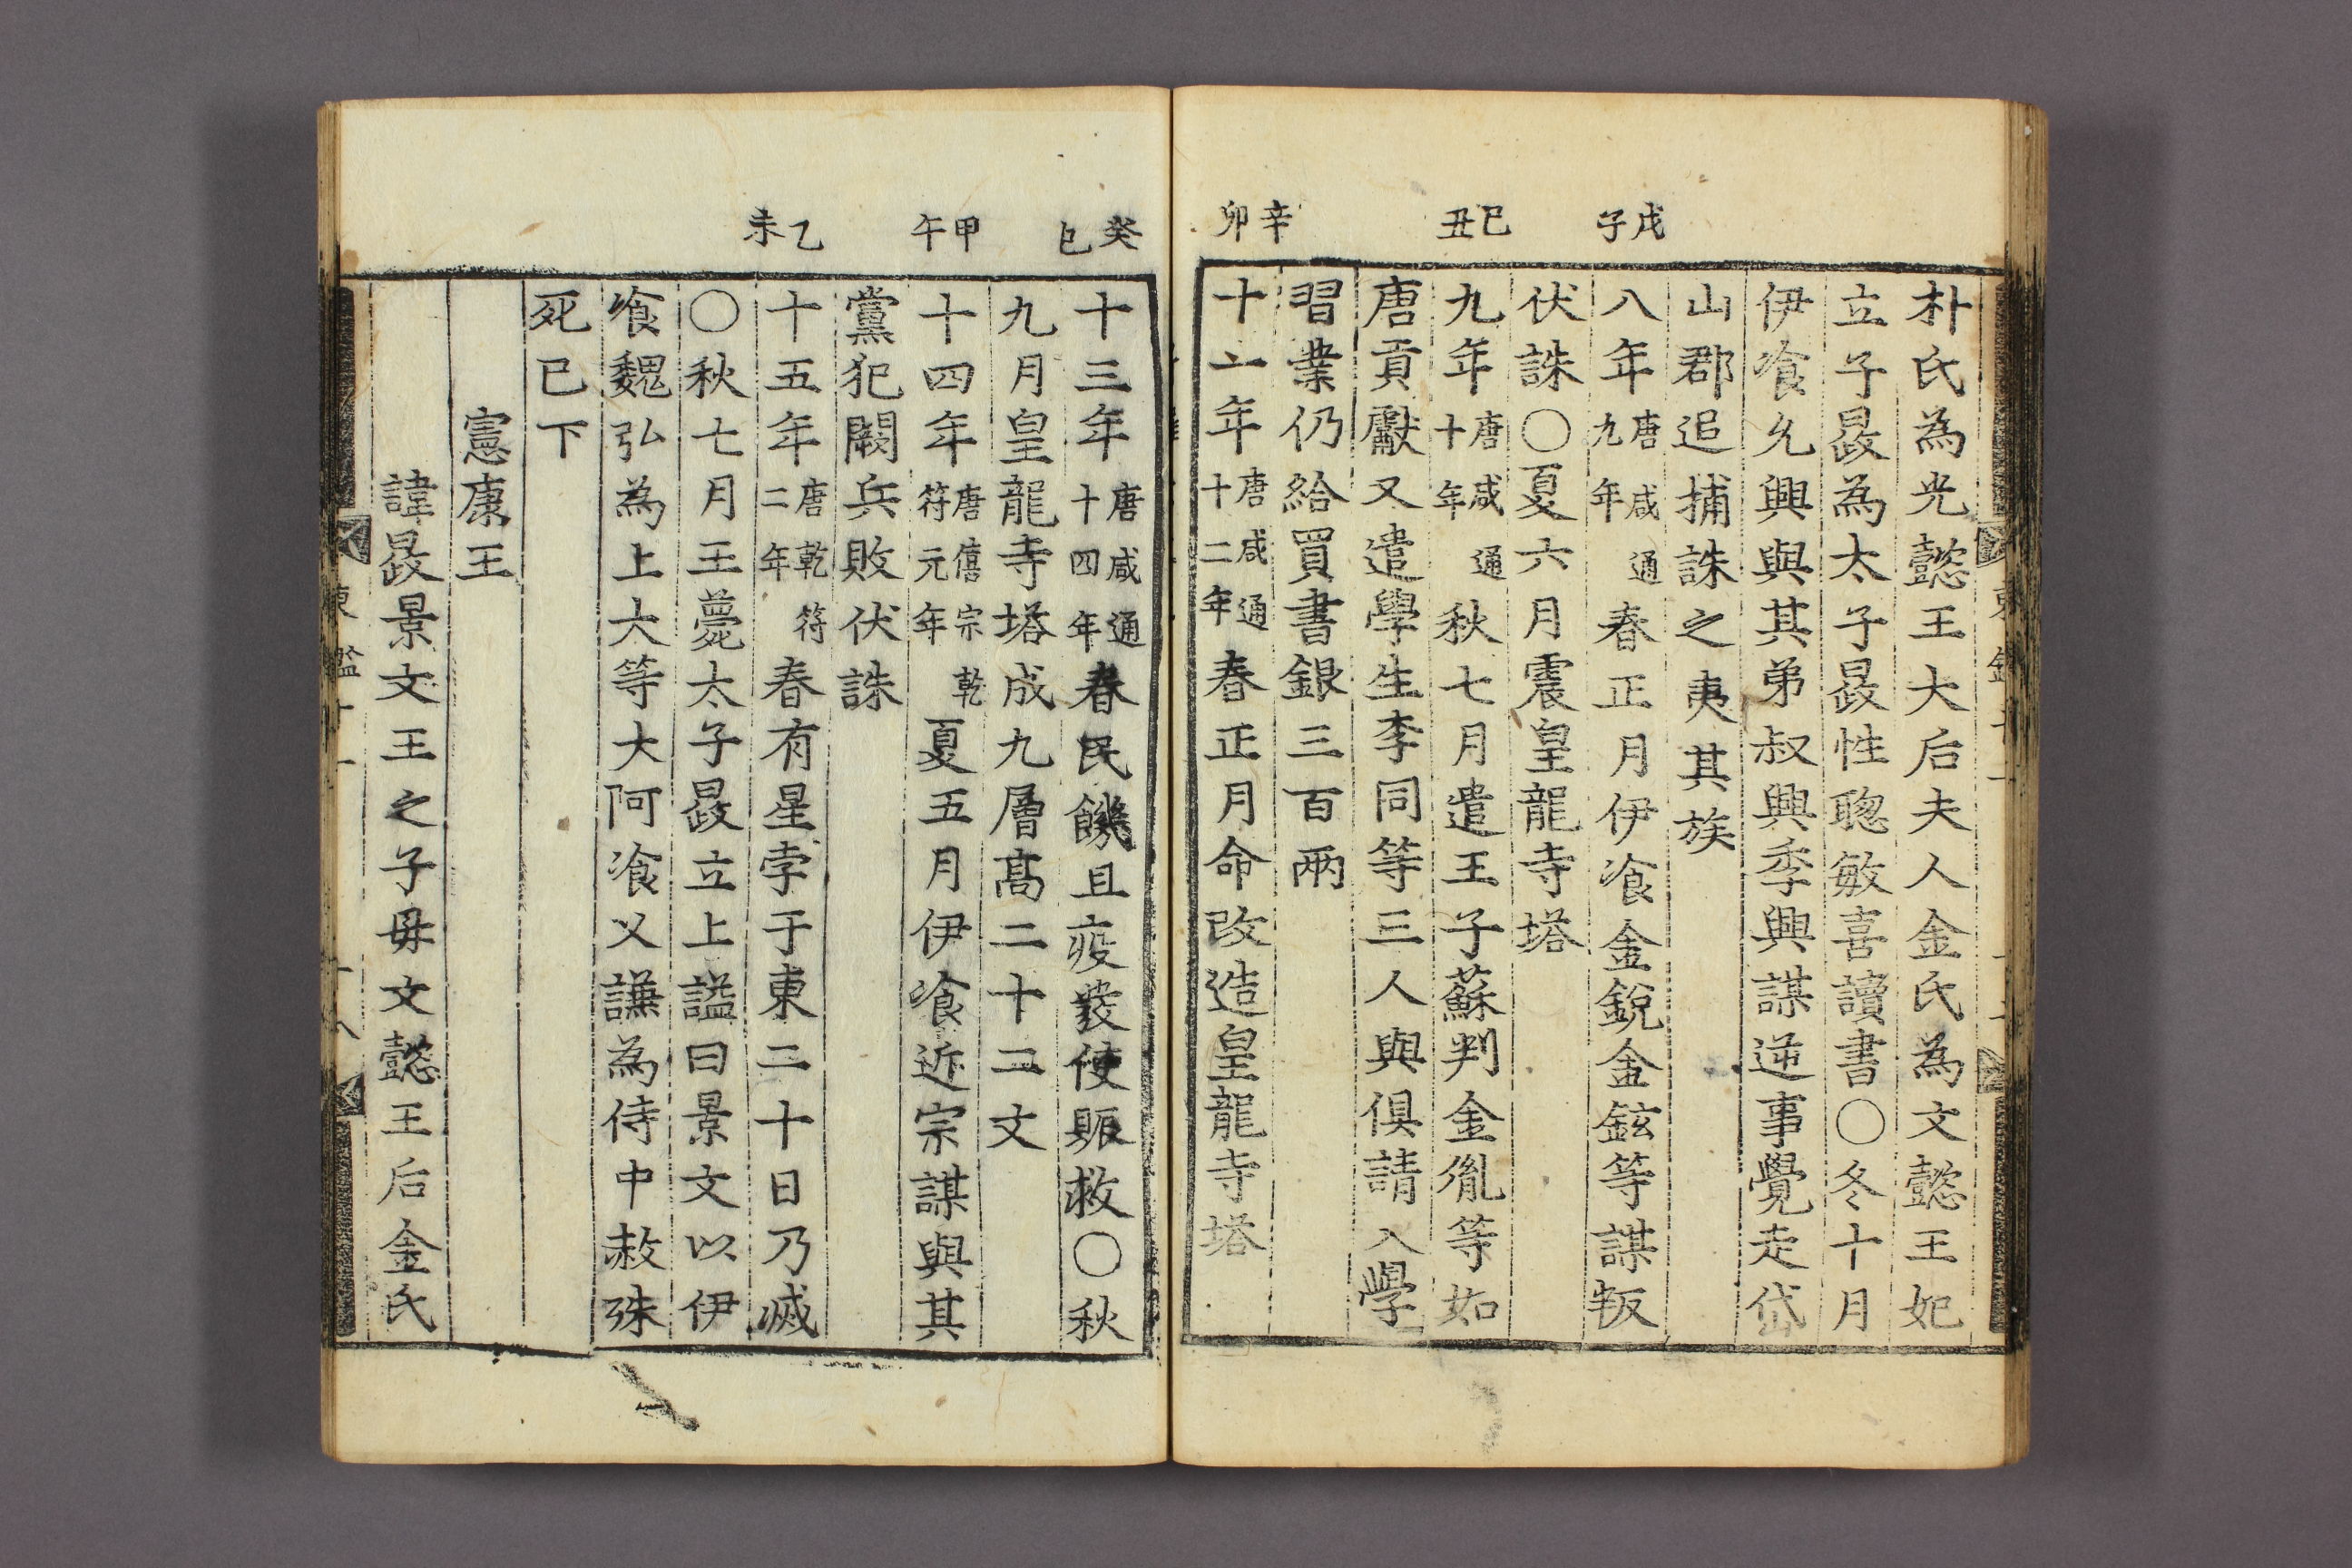 戊子
己丑
辛卯
朴氏為光懿王大后夫人金氏為文懿王妃
立子晸為太子晸性聰敏喜讀書〇冬十月
伊飡允興與其弟叔興季興謀逆事覺走岱
山郡追捕誅之夷其族
八年唐咸通九年春正月伊飡金銳金鉉等謀叛
伏誅〇夏六月震皇龍寺塔
九年唐咸通十年秋七月遣王子蘇判金胤等如
唐貢獻又遣學生李同等三人與俱請入學
習業仍給買書銀三百兩
十一年唐咸通十二年春正月命改造皇龍寺塔
癸巳
甲午
乙未
十三年唐咸通十四年春民饑且疫發使賑救〇秋
九月皇龍寺塔成九層高二十二丈
十四年唐僖宗乾符元年夏五月伊飡近宗謀與其
黨犯闕兵敗伏誅
十五年唐乾符二年春有星孛于東二十日乃滅
〇秋七月王薨太子晸立上謚曰景文以伊
飡魏弘為上大等大阿飡乂謙為侍中赦殊
死已下
憲康王
諱晸景文王之子母文懿王后金氏
東鑑十一
十八